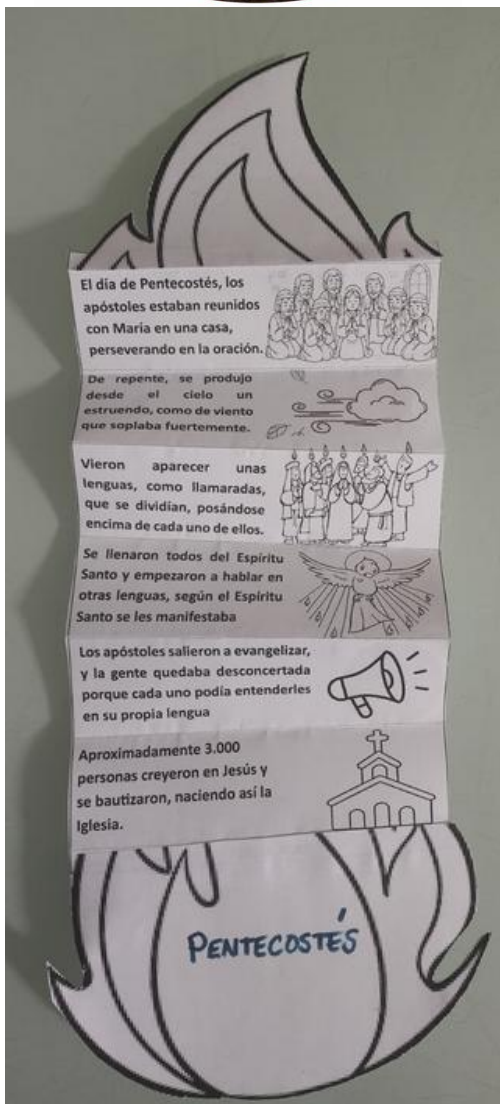 El día de Pentecostés, los
apóstoles estaban reunidos
con María en una casa,
perseverando en la oración.
De repente, se produjo
desde el cielo un
estruendo, como de viento
que soplaba fuertemente.
Vieron aparecer unas
lenguas, como llamaradas,
que se dividían, posándose
encima de cada uno de ellos.
Se llenaron todos del Espíritu
Santo y empezaron a hablar en
otras lenguas, según el Espíritu
Santo se les manifestaba
Los apóstoles salieron a evangelizar,
y la gente quedaba desconcertada
porque cada uno podía entenderles
en su propia lengua
Aproximadamente 3.000
personas creyeron en Jesús y
se bautizaron, naciendo así la
Iglesia.
PENTECOSTÉS